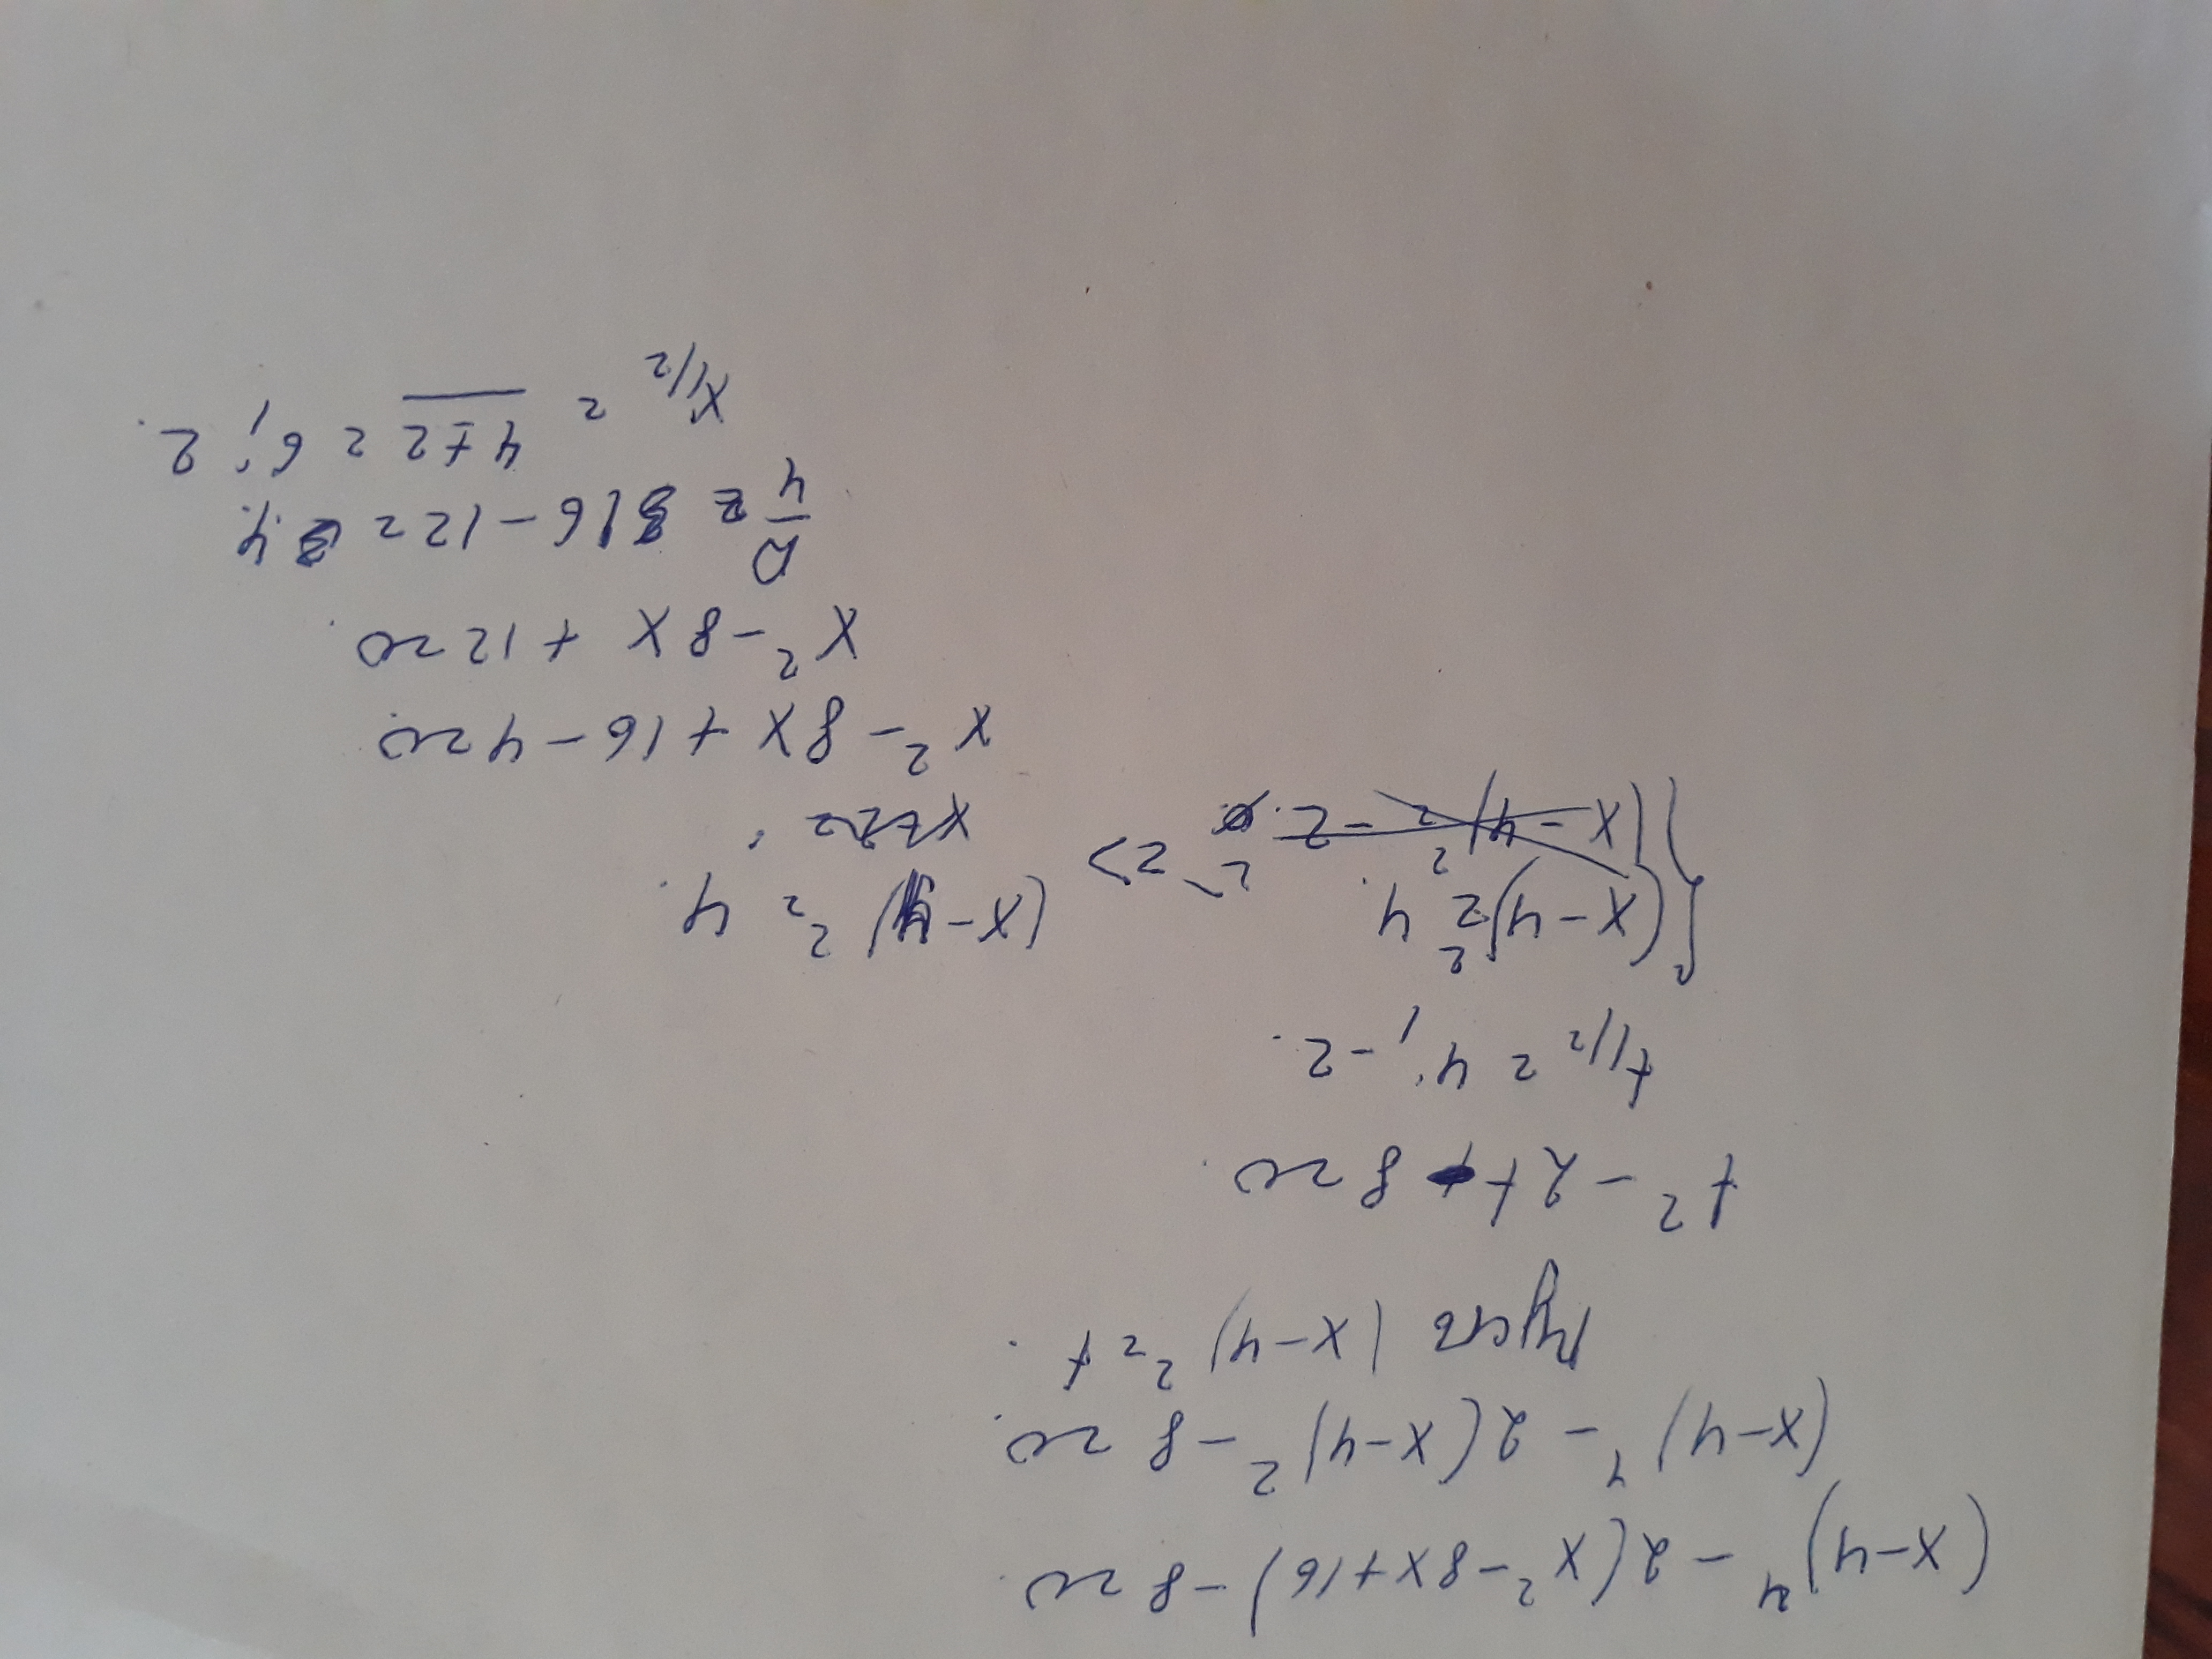 (x-4)⁴ - 2(x²-8x+16) - 8 = 0.
(x-4)⁴ - 2(x-4)² - 8 = 0.
Пусть (x-4)² = t.
t² - 2t - 8 = 0.
t1/2 = 4; -2.
(x-4)² = 4.
(x-4)² = -2.
=> (x-4)² = 4.
x² - 8x + 16 - 4 = 0.
x² - 8x + 12 = 0.
D/4 = 16 - 12 = 4.
x1/2 = 4±2 = 6; 2.